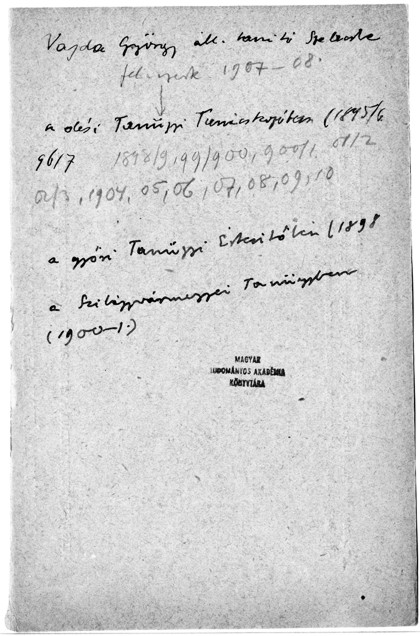 Vajda György áll. tanító Szelecske
1907–08.
a dési Tanügyi Tanácskozóban (1895/6
96/7 1898/9, 99/900, 900/1, 01/2
02/3, 1904, 05, 06, 07, 08, 09, 10
a győri Tanügyi Értesítőben (1898
a Szilágyvármegyei Tanügyben
(1900–1.)
MAGYAR
TUDOMÁNYOS AKADÉMIA
KÖNYVTÁRA